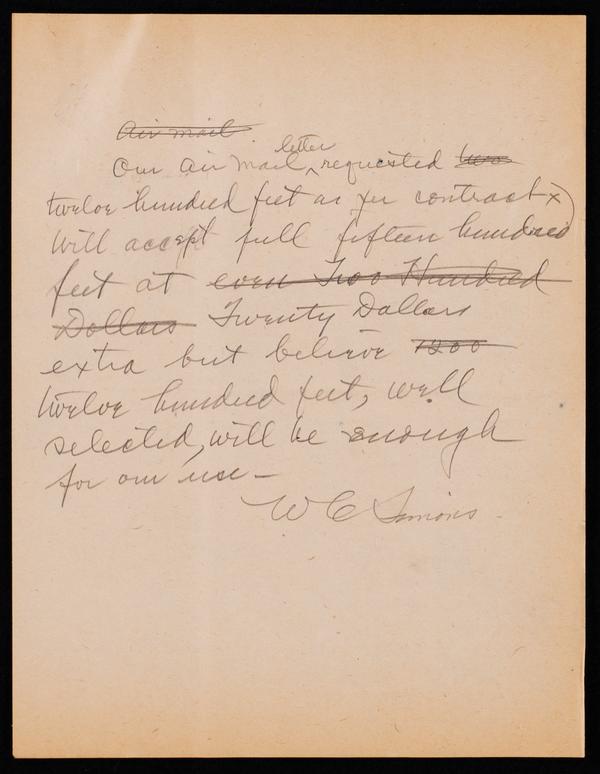 Air mail
Our Air Mail letter requested two
twelve hundred feet as per contract x)
Will accept full fifteen hundred
feet at even Two Hundred
Dollars Twenty Dollars
extra but believe 1200
twelve hundred feet, well
selected, will be enough
for our use –
W C Simons.